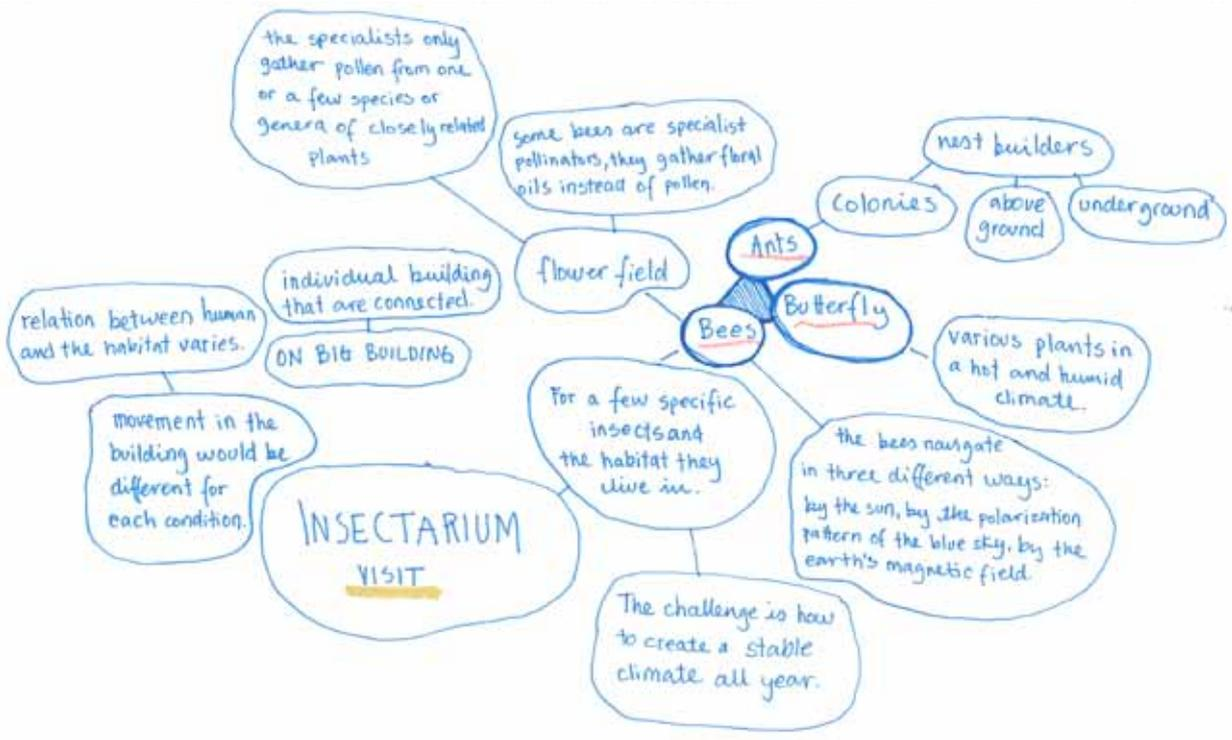 the specialists only
gather pollen from one
or a few species or
genera of closely related
plants
some bees are specialist
pollinators, they gather floral
oils instead of pollen.
nest builders
colonies
above
ground
underground
Ants
flower field
individual building
that are connected.
relation between human
and the habitat varies.
ON BIG BUILDING
Bees
Butterfly
various plants in
a hot and humid
climate.
For a few specific
insects and
the habitat they
live in.
movement in the
building would be
different for
each condition.
the bees navigate
in three different ways:
by the sun, by the polarization
pattern of the blue sky, by the
earth's magnetic field.
INSECTARIUM
VISIT
The challenge is how
to create a stable
climate all year.